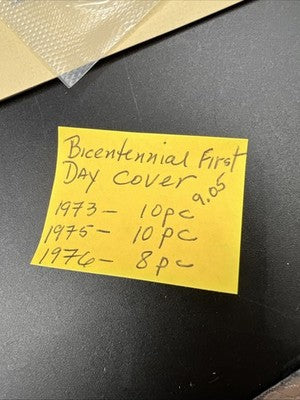 Bicentennial First
DAY Cover
9.05
1973 - 10pc
1975 - 10pc
1976 - 8pc